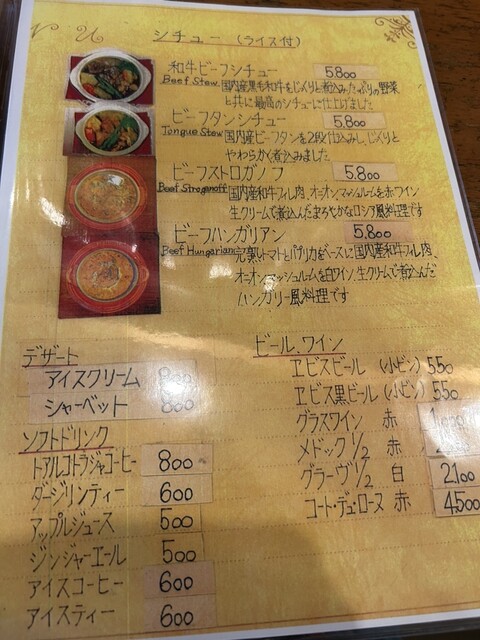 シチュー (ライス付)
和牛ビーフシチュー 5.800
Beef Stew 国内産黒毛和牛をじっくりと煮込みたっぷりの野菜
と共に最高のシチューに仕上りました
ビーフタンシチュー 5.800
Tongue Stew 国内産ビーフタンを2段仕込みし、じっくりと
やわらかく煮込みました
ビーフストロガノフ 5.800
Beef Stroganoff 国内産和牛フィレ肉、オニオンマッシュルームを赤ワイン
生クリームで煮込んだまろやかなロシア風料理です
ビーフハンガリアン 5.800
Beef Hungarian 完熟トマトとパプリカをベースに国内産和牛フィレ肉、
オニオンマッシュルームを白ワイン、生クリームで煮込んだ
ハンガリー風料理です
デザート
アイスクリーム 800
シャーベット 800
ソフトドリンク
トアルコトラジャコーヒー 800
ダージリンティー 600
アップルジュース 500
ジンジャーエール 500
アイスコーヒー 600
アイスティー 600
ビール.ワイン
ヱビスビール (小ビン) 550
ヱビス黒ビール (小ビン) 550
グラスワイン 赤
メドック 1/2 赤
グラーヴ 1/2 白 2100
コート・デュ・ローヌ 赤 4500